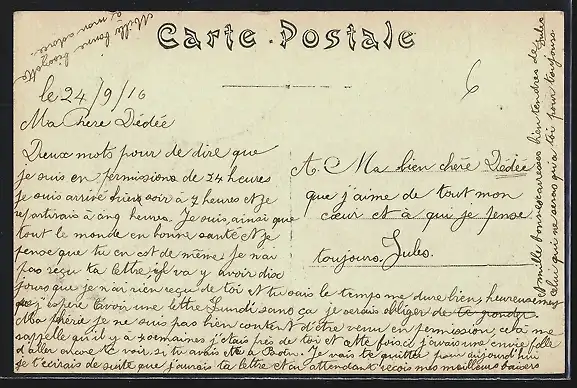 Mille bonne bisoyette
à mon adorée.
Carte Postale
le 24/9/16
6
Ma chère Dédée
Deux mots pour de dire que
je suis en permissions de 24 heures
je suis arrivé hier soir à 7 heures et je
repartirais à cinq heures. Je suis ainsi que
tout le monde en bonne santé et je
pense que tu en est de même je n'ai
pas reçu ta lettre, il va y avoir dix
jours que je n'ai rien reçu de toi et tu sais le temps me dure bien heureusement
que j'espère avoir une lettre Lundi sans ça je serais obliger de te gronder
Ma chérie je ne suis pas bien content d'être venu en permission celà me
rappelle qu'il y a 4 semaines j'étais près de toi et cette fois ci j'avais une envie folle
d'aller encore te voir si tu avais été à Je vais te quitter pour aujourd'hui
je t'écrirais de suite que j'aurais ta lettre et en attendant reçois mes meilleurs baisers
A. Ma bien chère Dédée
que j'aime de tout mon
cœur et à qui je pense
toujours. Jules.
et mille bonnes caresses bien tendres de Jules
celui qui ne seras qu'à toi pour toujours.